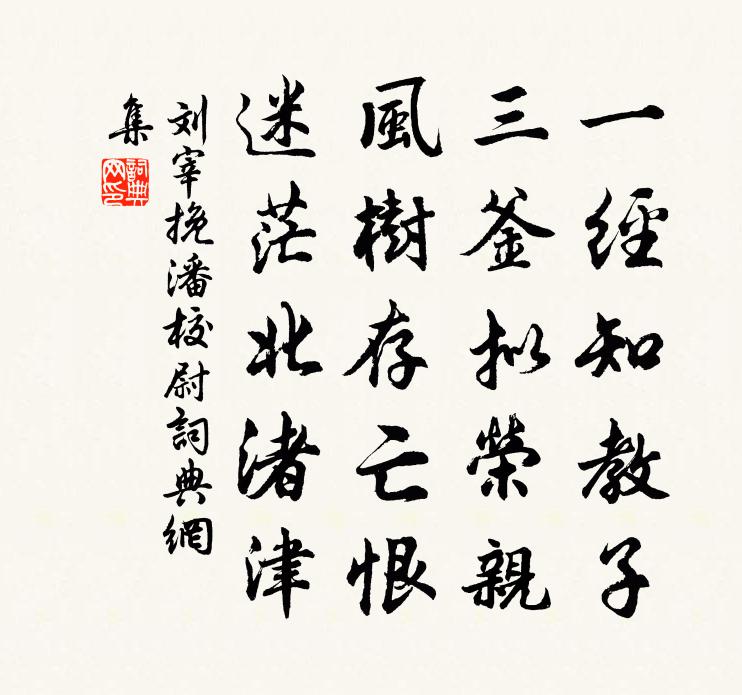 一經知教子
三釜拟榮親
風樹存亡恨
迷茫北渚津
刘宰挽潘校尉詞典網
集
詞典网印